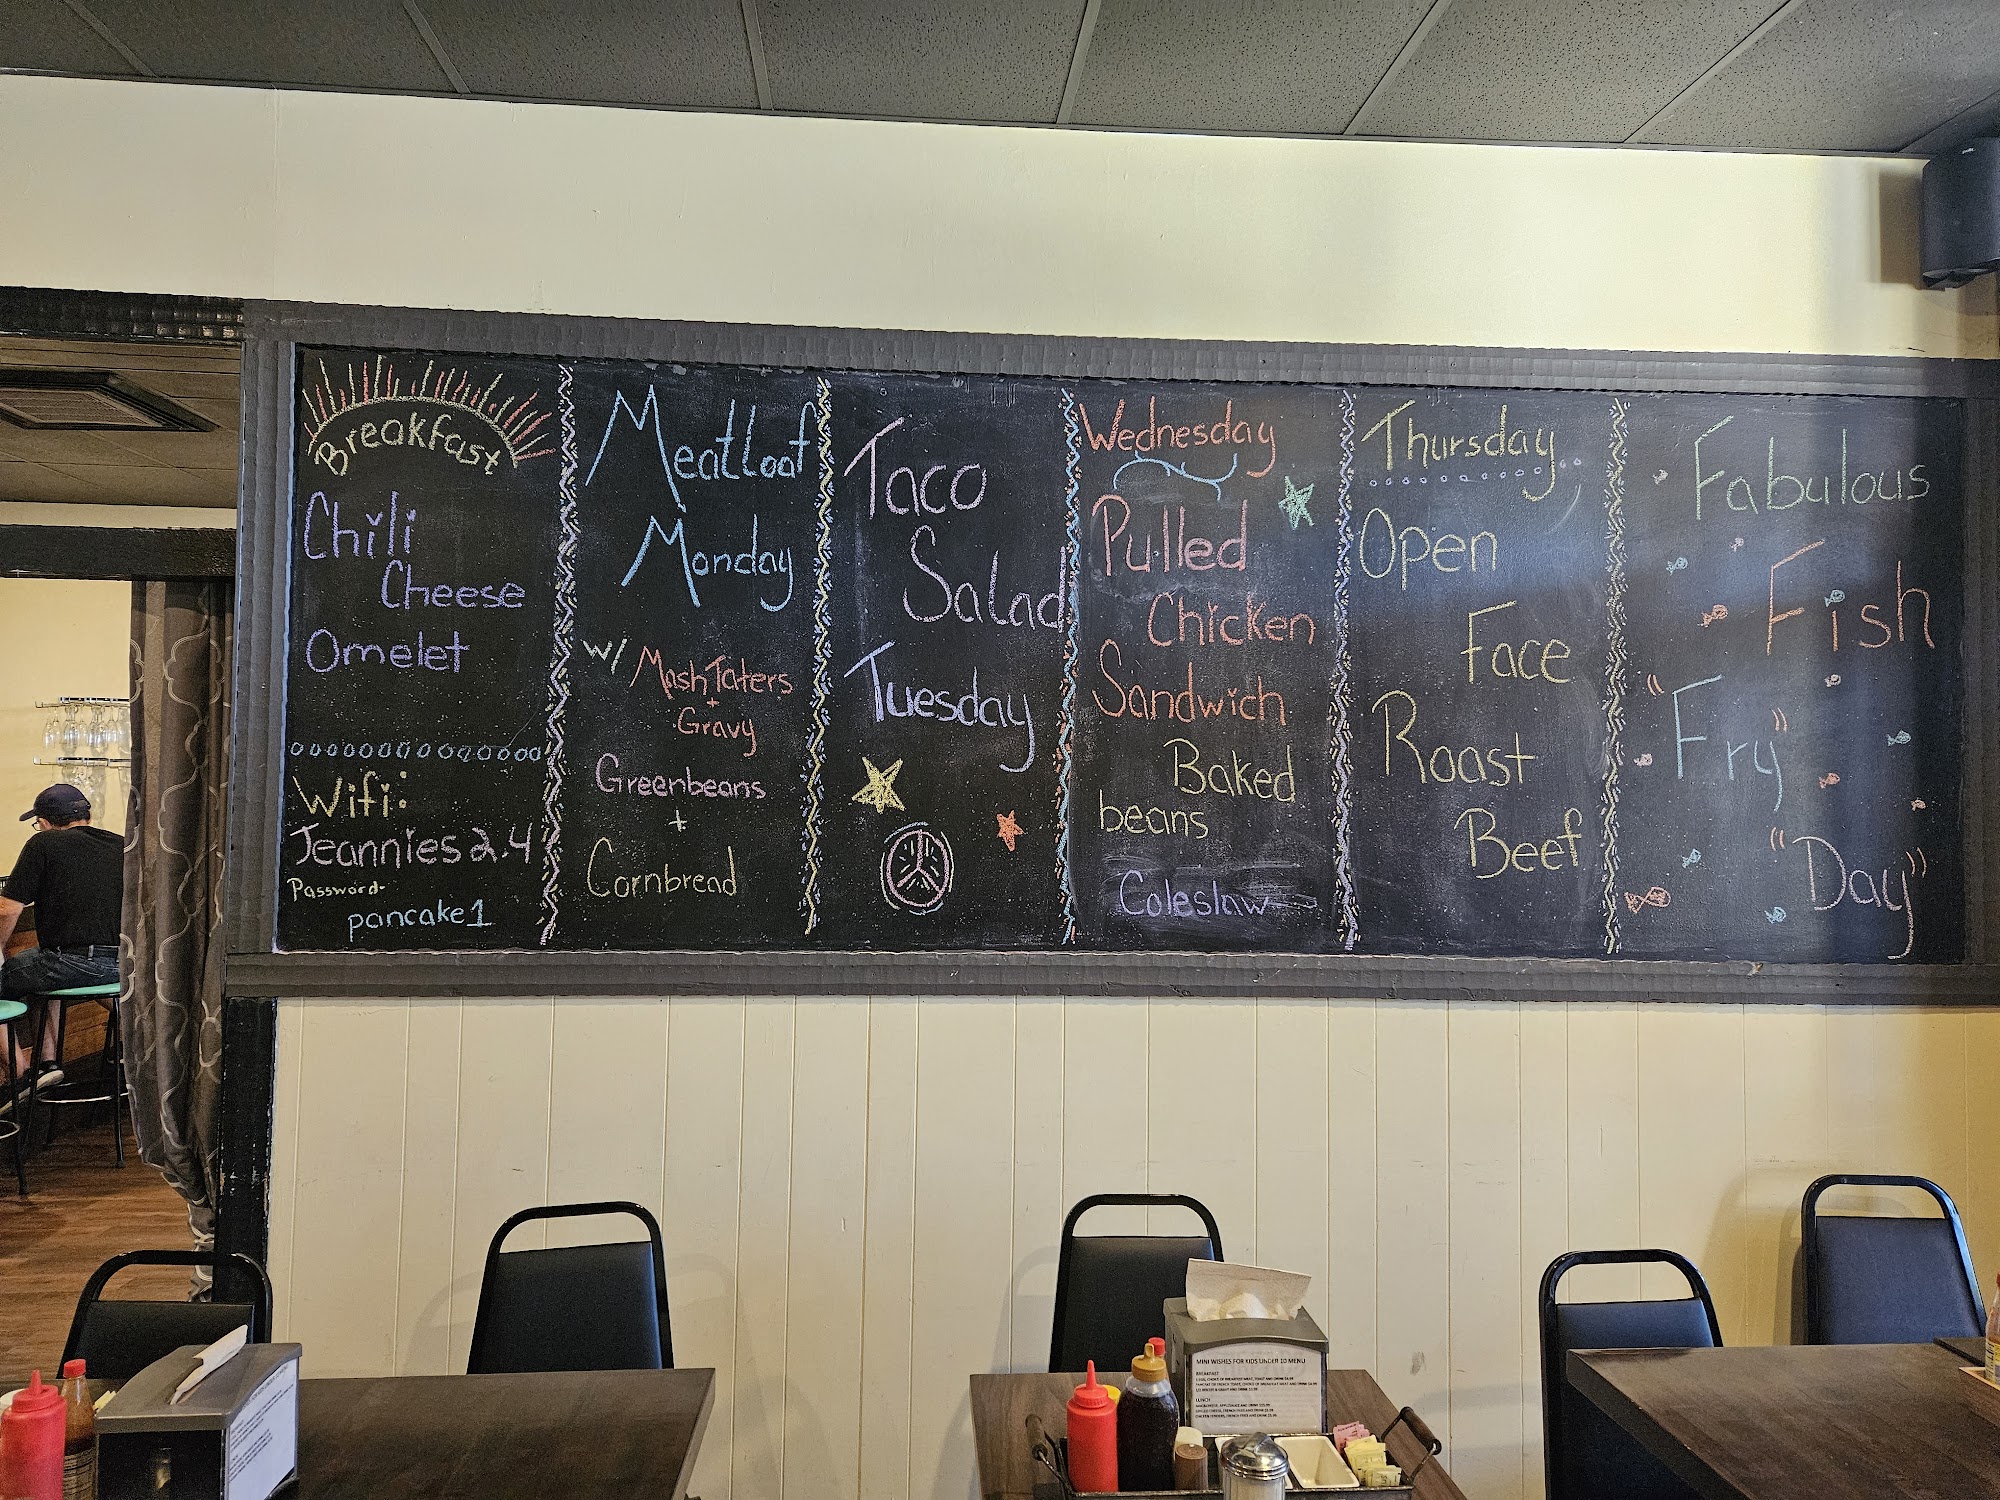 Breakfast
Chili
Cheese
Omelet
Wifi:
Jeannies2.4
Password-
pancake1
Meatloaf
Monday
w/ Mash Taters
+
Gravy
Greenbeans
+
Cornbread
Taco
Salad
Tuesday
Wednesday
Pulled
Chicken
Sandwich
Baked
beans
Coleslaw
Thursday
Open
Face
Roast
Beef
Fabulous
Fish
"Fry"
"Day"
MINI WISHES FOR KIDS UNDER 10 MENU
BREAKFAST
LUNCH